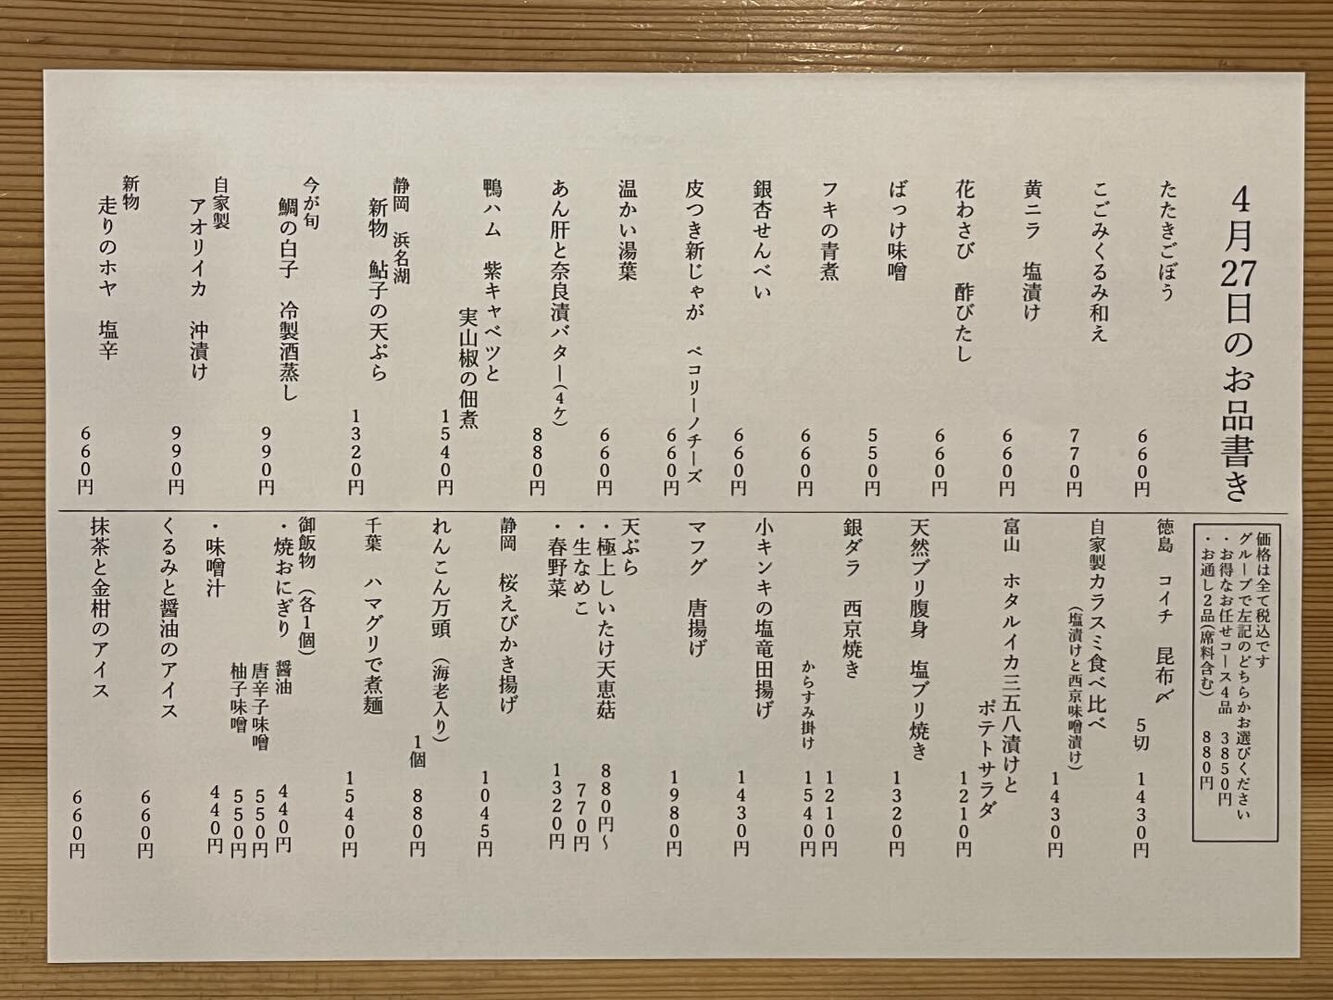 4月27日のお品書き
たたきごぼう 660円
こごみくるみ和え 770円
黄ニラ 塩漬け 660円
花わさび 酢びたし 660円
ばっけ味噌 550円
フキの青煮 660円
銀杏せんべい 660円
皮つき新じゃが ペコリーノチーズ 660円
温かい湯葉 660円
あん肝と奈良漬バター(4ケ) 880円
鴨ハム 紫キャベツと
実山椒の佃煮 1540円
静岡 浜名湖
新物 鮎子の天ぷら 1320円
今が旬
鯛の白子 冷製酒蒸し 990円
自家製
アオリイカ 沖漬け 990円
新物
走りのホヤ 塩辛 660円
価格は全て税込です
グループで左記のどちらかお選びください
・お得なお任せコース4品 3850円
・お通し2品(席料含む) 880円
徳島 コイチ 昆布〆
5切 1430円
自家製カラスミ食べ比べ
(塩漬けと西京味噌漬け) 1430円
富山 ホタルイカ三五八漬けと
ポテトサラダ 1210円
天然ブリ腹身 塩ブリ焼き 1320円
銀ダラ 西京焼き 1210円
からすみ掛け 1540円
小キンキの塩竜田揚げ 1430円
マフグ 唐揚げ 1980円
天ぷら
・極上しいたけ天恵菇 880円〜
・生なめこ 770円
・春野菜 1320円
静岡 桜えびかき揚げ 1045円
れんこん万頭 (海老入り)
1個 880円
千葉 ハマグリで煮麺 1540円
御飯物 (各1個)
・焼おにぎり 醤油 440円
唐辛子味噌 550円
柚子味噌 550円
・味噌汁 440円
くるみと醤油のアイス 660円
抹茶と金柑のアイス 660円